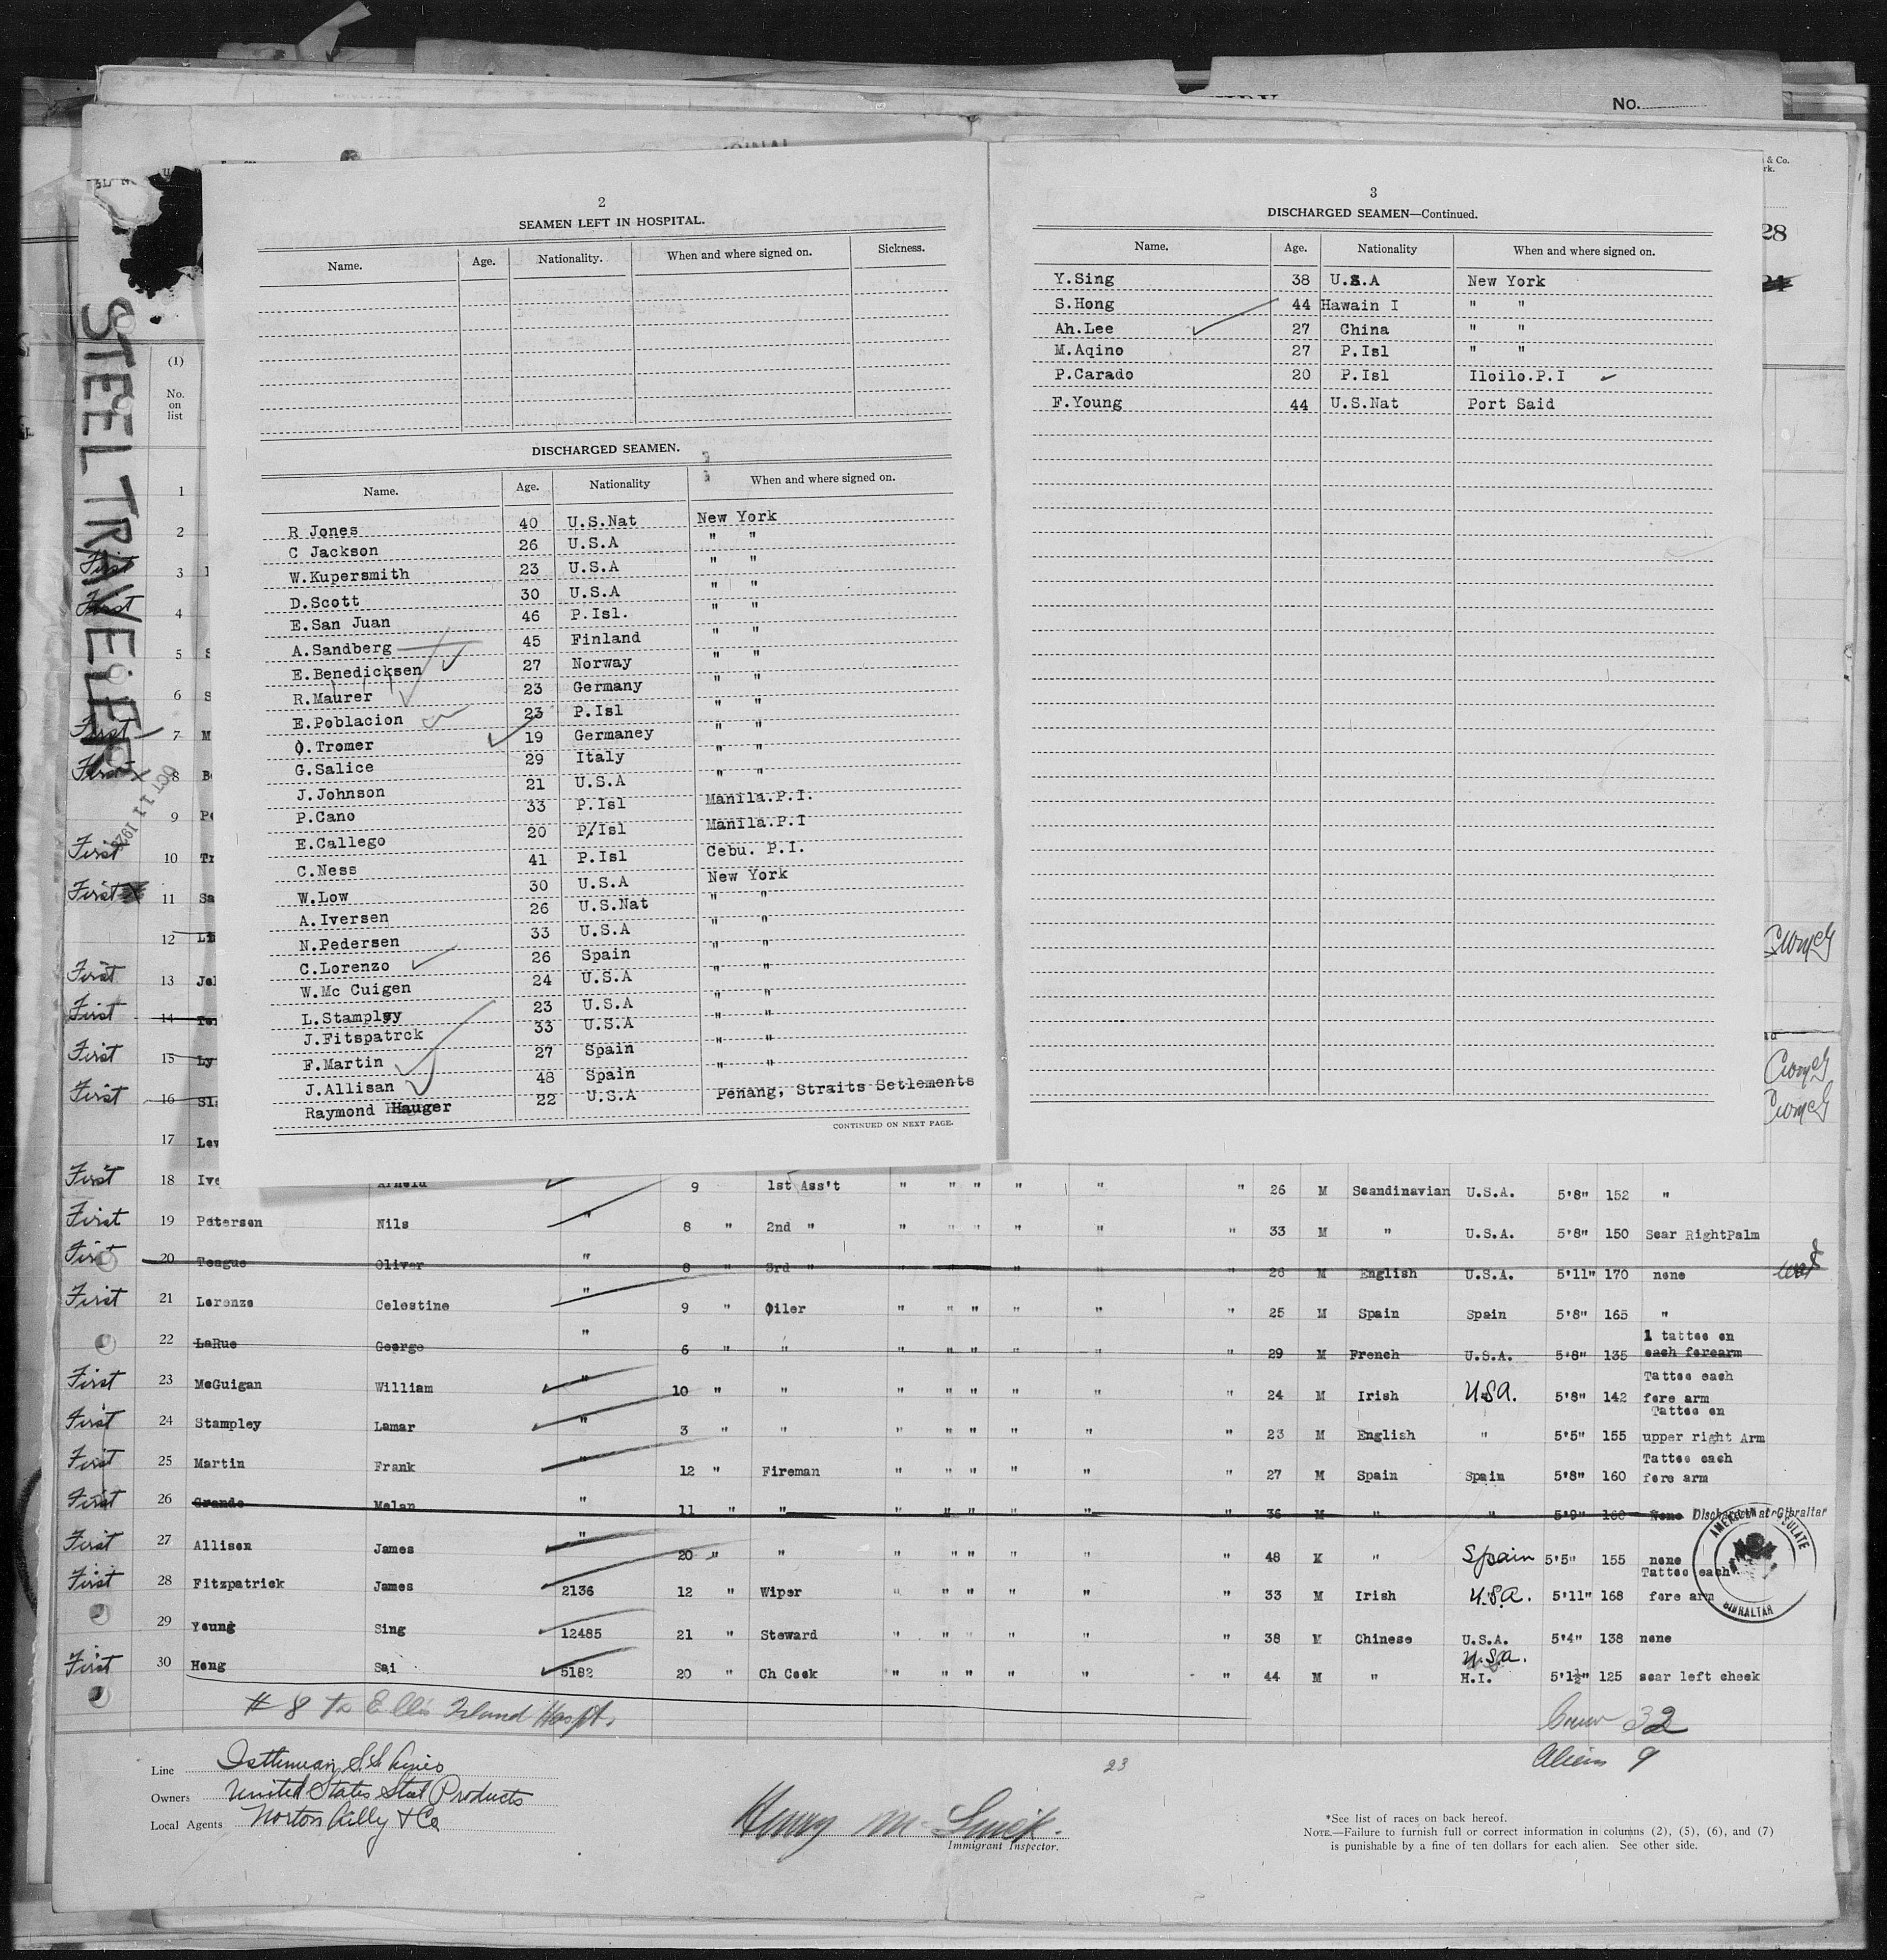 No.
& Co.
rk.
28
24
STEEL TRAVELER
OCT 11 192
2
SEAMEN LEFT IN HOSPITAL.
Name. Age. Nationality. When and where signed on. Sickness.
DISCHARGED SEAMEN.
Name. Age. Nationality When and where signed on.
R Jones 40 U.S.Nat New York
C Jackson 26 U.S.A " "
W.Kupersmith 23 U.S.A " "
D.Scott 30 U.S.A " "
E.San Juan 46 P.Isl. " "
A.Sandberg 45 Finland " "
E.Benedicksen 27 Norway " "
R.Maurer 23 Germany " "
E.Poblacion 23 P.Isl " "
O.Tromer 19 Germaney " "
G.Salice 29 Italy " "
J.Johnson 21 U.S.A " "
P.Cano 33 P.Isl Manila.P.I.
E.Callego 20 P.Isl Manila.P.I
C.Ness 41 P.Isl Cebu. P.I.
W.Low 30 U.S.A New York
A.Iversen 26 U.S.Nat " "
N.Pedersen 33 U.S.A " "
C.Lorenzo 26 Spain " "
W.Mc Cuigen 24 U.S.A " "
L.Stampley 23 U.S.A " "
J.Fitspatrck 33 U.S.A " "
F.Martin 27 Spain " "
J.Allisan 48 Spain " "
Raymond Hauger 22 U.S.A Penang, Straits Setlements
CONTINUED ON NEXT PAGE.
3
DISCHARGED SEAMEN—Continued.
Name. Age. Nationality When and where signed on.
Y.Sing 38 U.S.A New York
S.Hong 44 Hawain I " "
Ah.Lee 27 China " "
M.Aqino 27 P.Isl " "
P.Carado 20 P.Isl Iloilo.P.I
F.Young 44 U.S.Nat Port Said
(1)
No.
on
list
1
2
First 3
First 4
5 S
6 S
First 7 M
First 8 Be
9 Pe
First 10 Tr
First 11 Sa
12 Li
First 13 Jol
First 14 Ter
First 15 Ly
First 16 Sla
17 Lev
First 18 Ive Arnold 9 1st Ass't " " " " " " 26 M Scandinavian U.S.A. 5'8" 152 "
First 19 Petersen Nils " 8 " 2nd " " " " " " " 33 M " U.S.A. 5'8" 150 Scar RightPalm
First 20 Teague Oliver " 8 " 3rd " " " " " 26 M English U.S.A. 5'11" 170 none
First 21 Lorenzo Celestine " 9 " Oiler " " " " " " 25 M Spain Spain 5'8" 165 "
22 LaRue George " 6 " " " " " " " " 29 M French U.S.A. 5'8" 135 1 tattoo on each forearm
First 23 McGuigan William " 10 " " " " " " " " 24 M Irish U.S.A. 5'8" 142 Tattoo each fore arm
First 24 Stampley Lamar " 3 " " " " " " " " 23 M English " 5'5" 155 Tattoo on upper right Arm
First 25 Martin Frank " 12 " Fireman " " " " " " 27 M Spain Spain 5'8" 160 Tattoo each fore arm
First 26 Grande Melan " 11 " " " " " " " " 36 M " " 5'9" 160 None Discharged at Gibraltar
First 27 Allison James " 20 " " " " " " " " 48 M " Spain 5'5" 155 none
First 28 Fitzpatrick James 2136 12 " Wiper " " " " " " 33 M Irish U.S.A. 5'11" 168 Tattoo each fore arm
29 Young Sing 12485 21 " Steward " " " " " " 38 M Chinese U.S.A. 5'4" 138 none
First 30 Hong Sai 5182 20 " Ch Cook " " " " " " 44 M " U.S.A. H.I. 5'1½" 125 scar left cheek
AMERICAN CONSULATE
GIBRALTAR
# 8 to Ellis Island Hospt.
Crew 32
Aliens 9
23
Line Isthmian S.S. Lines
Owners United States Steel Products
Local Agents Norton Lilly & Co
Henry
Immigrant Inspector.
*See list of races on back hereof.
NOTE.—Failure to furnish full or correct information in columns (2), (5), (6), and (7)
is punishable by a fine of ten dollars for each alien. See other side.